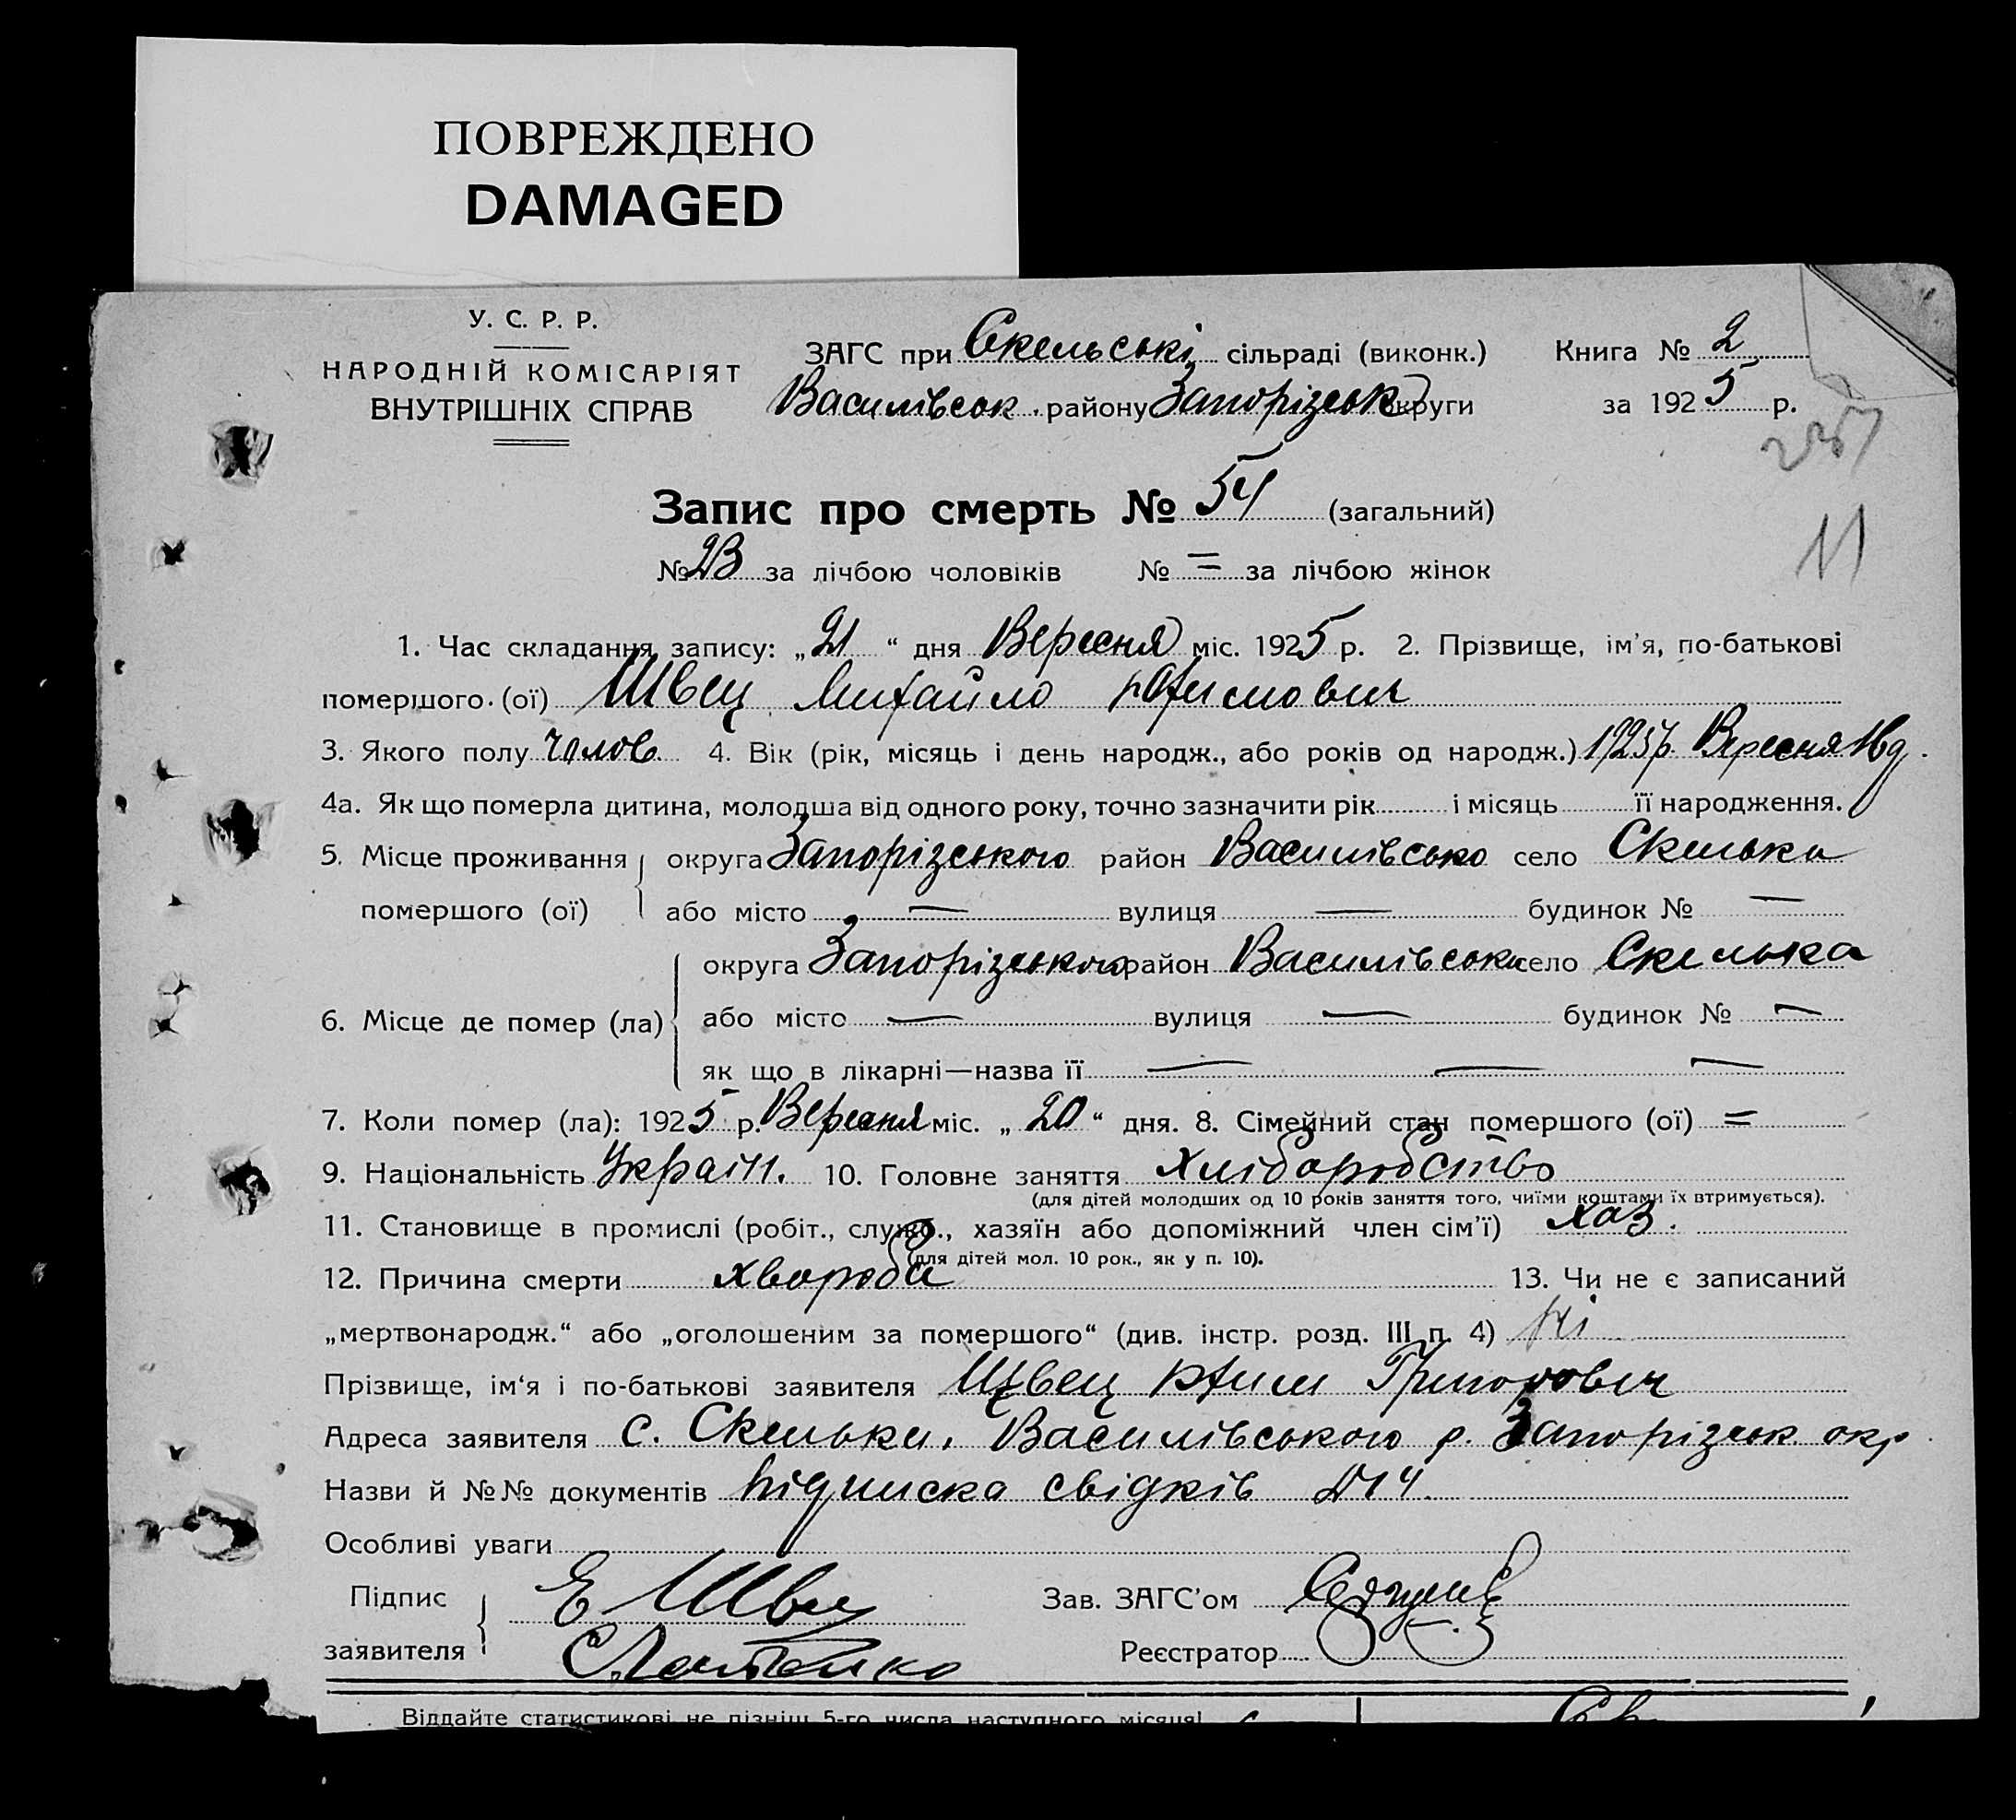 ПОВРЕЖДЕНО
DAMAGED
У. С. Р. Р.
НАРОДНІЙ КОМІСАРІЯТ
ВНУТРІШНІХ СПРАВ
ЗАГС при Скельські сільраді (виконк.) Книга № 2
Василівськ. району Запорізськ округи за 1925 р.
Запис про смерть № 54 (загальний)
11
№ 23 за лічбою чоловіків № = за лічбою жінок
1. Час складання запису: „21“ дня Вересня міс. 1925 р. 2. Прізвище, ім'я, по-батькові
помершого (ої) Швец Михайло
3. Якого полу чолов. 4. Вік (рік, місяць і день народж., або років од народж.) 1925 р. Вересня 16 д.
4а. Як що померла дитина, молодша від одного року, точно зазначити рік і місяць її народження.
5. Місце проживання округа Запорізського район Василівсько село Скельки
помершого (ої) або місто — вулиця — будинок № —
округа Запорізського район Василівська село Скелька
6. Місце де помер (ла) або місто — вулиця — будинок № —
як що в лікарні—назва її — — —
7. Коли помер (ла): 1925 р. Вересня міс. „20“ дня. 8. Сімейний стан помершого (ої) =
9. Національність Україн. 10. Головне заняття хліборобство
(для дітей молодших од 10 років заняття того, чиїми коштами їх втримується).
11. Становище в промислі (робіт., служб., хазяїн або допоміжний член сім'ї) хаз.
(для дітей мол. 10 рок., як у п. 10).
12. Причина смерти хвороба 13. Чи не є записаний
„мертвонародж.“ або „оголошеним за помершого“ (див. інстр. розд. III п. 4) ні
Прізвище, ім'я і по-батькові заявителя Швец
Адреса заявителя с. Скельки, Василівського р. Запорізськ. окр.
Назви й №№ документів підписка свідків
Особливі уваги
Підпис Е Швец Зав. ЗАГС'ом
заявителя Реєстратор
Віддайте статистикові не пізніш 5-го числа наступного місяця!